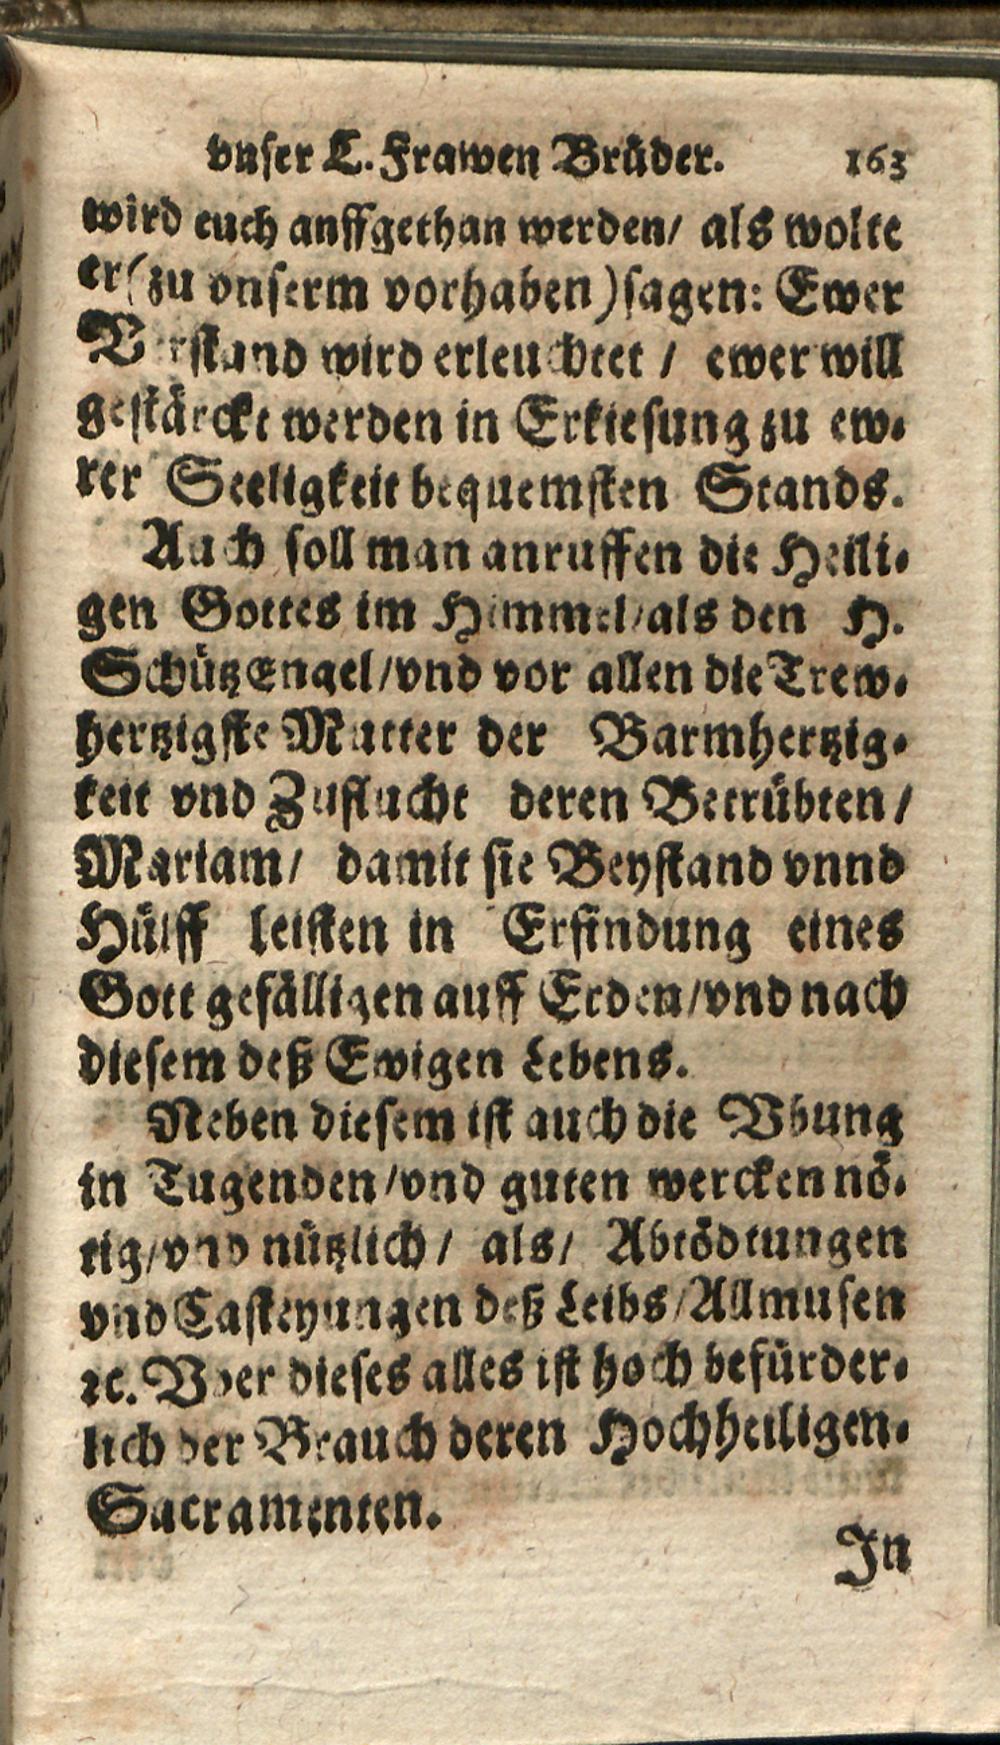 vnser L. Frawen Brüder. 163
wird euch anffgethan werden/ als wolte
er (zu vnserm vorhaben) sagen: Ewer
Verstand wird erleuchtet / ewer will
gestärckt werden in Erkiesung zu ew-
rer Seeligkeit bequemsten Stands.
Auch soll man anruffen die Heili-
gen Gottes im Himmel/als den H.
SchützEngel/vnd vor allen die Trew-
hertzigste Mutter der Barmhertzig-
keit vnd Zuflucht deren Betrübten/
Mariam/ damit sie Beystand vnnd
Hülff leisten in Erfindung eines
Gott gefälligen auff Erden/vnd nach
diesem deß Ewigen Lebens.
Neben diesem ist auch die Vbung
in Tugenden/vnd guten wercken nö-
tig/vnd nützlich/ als/ Abtödtungen
vnd Casteyungen deß Leibs/Allmusen
ꝛc. Vber dieses alles ist hoch befürder-
lich der Brauch deren Hochheiligen-
Sacramenten.
In